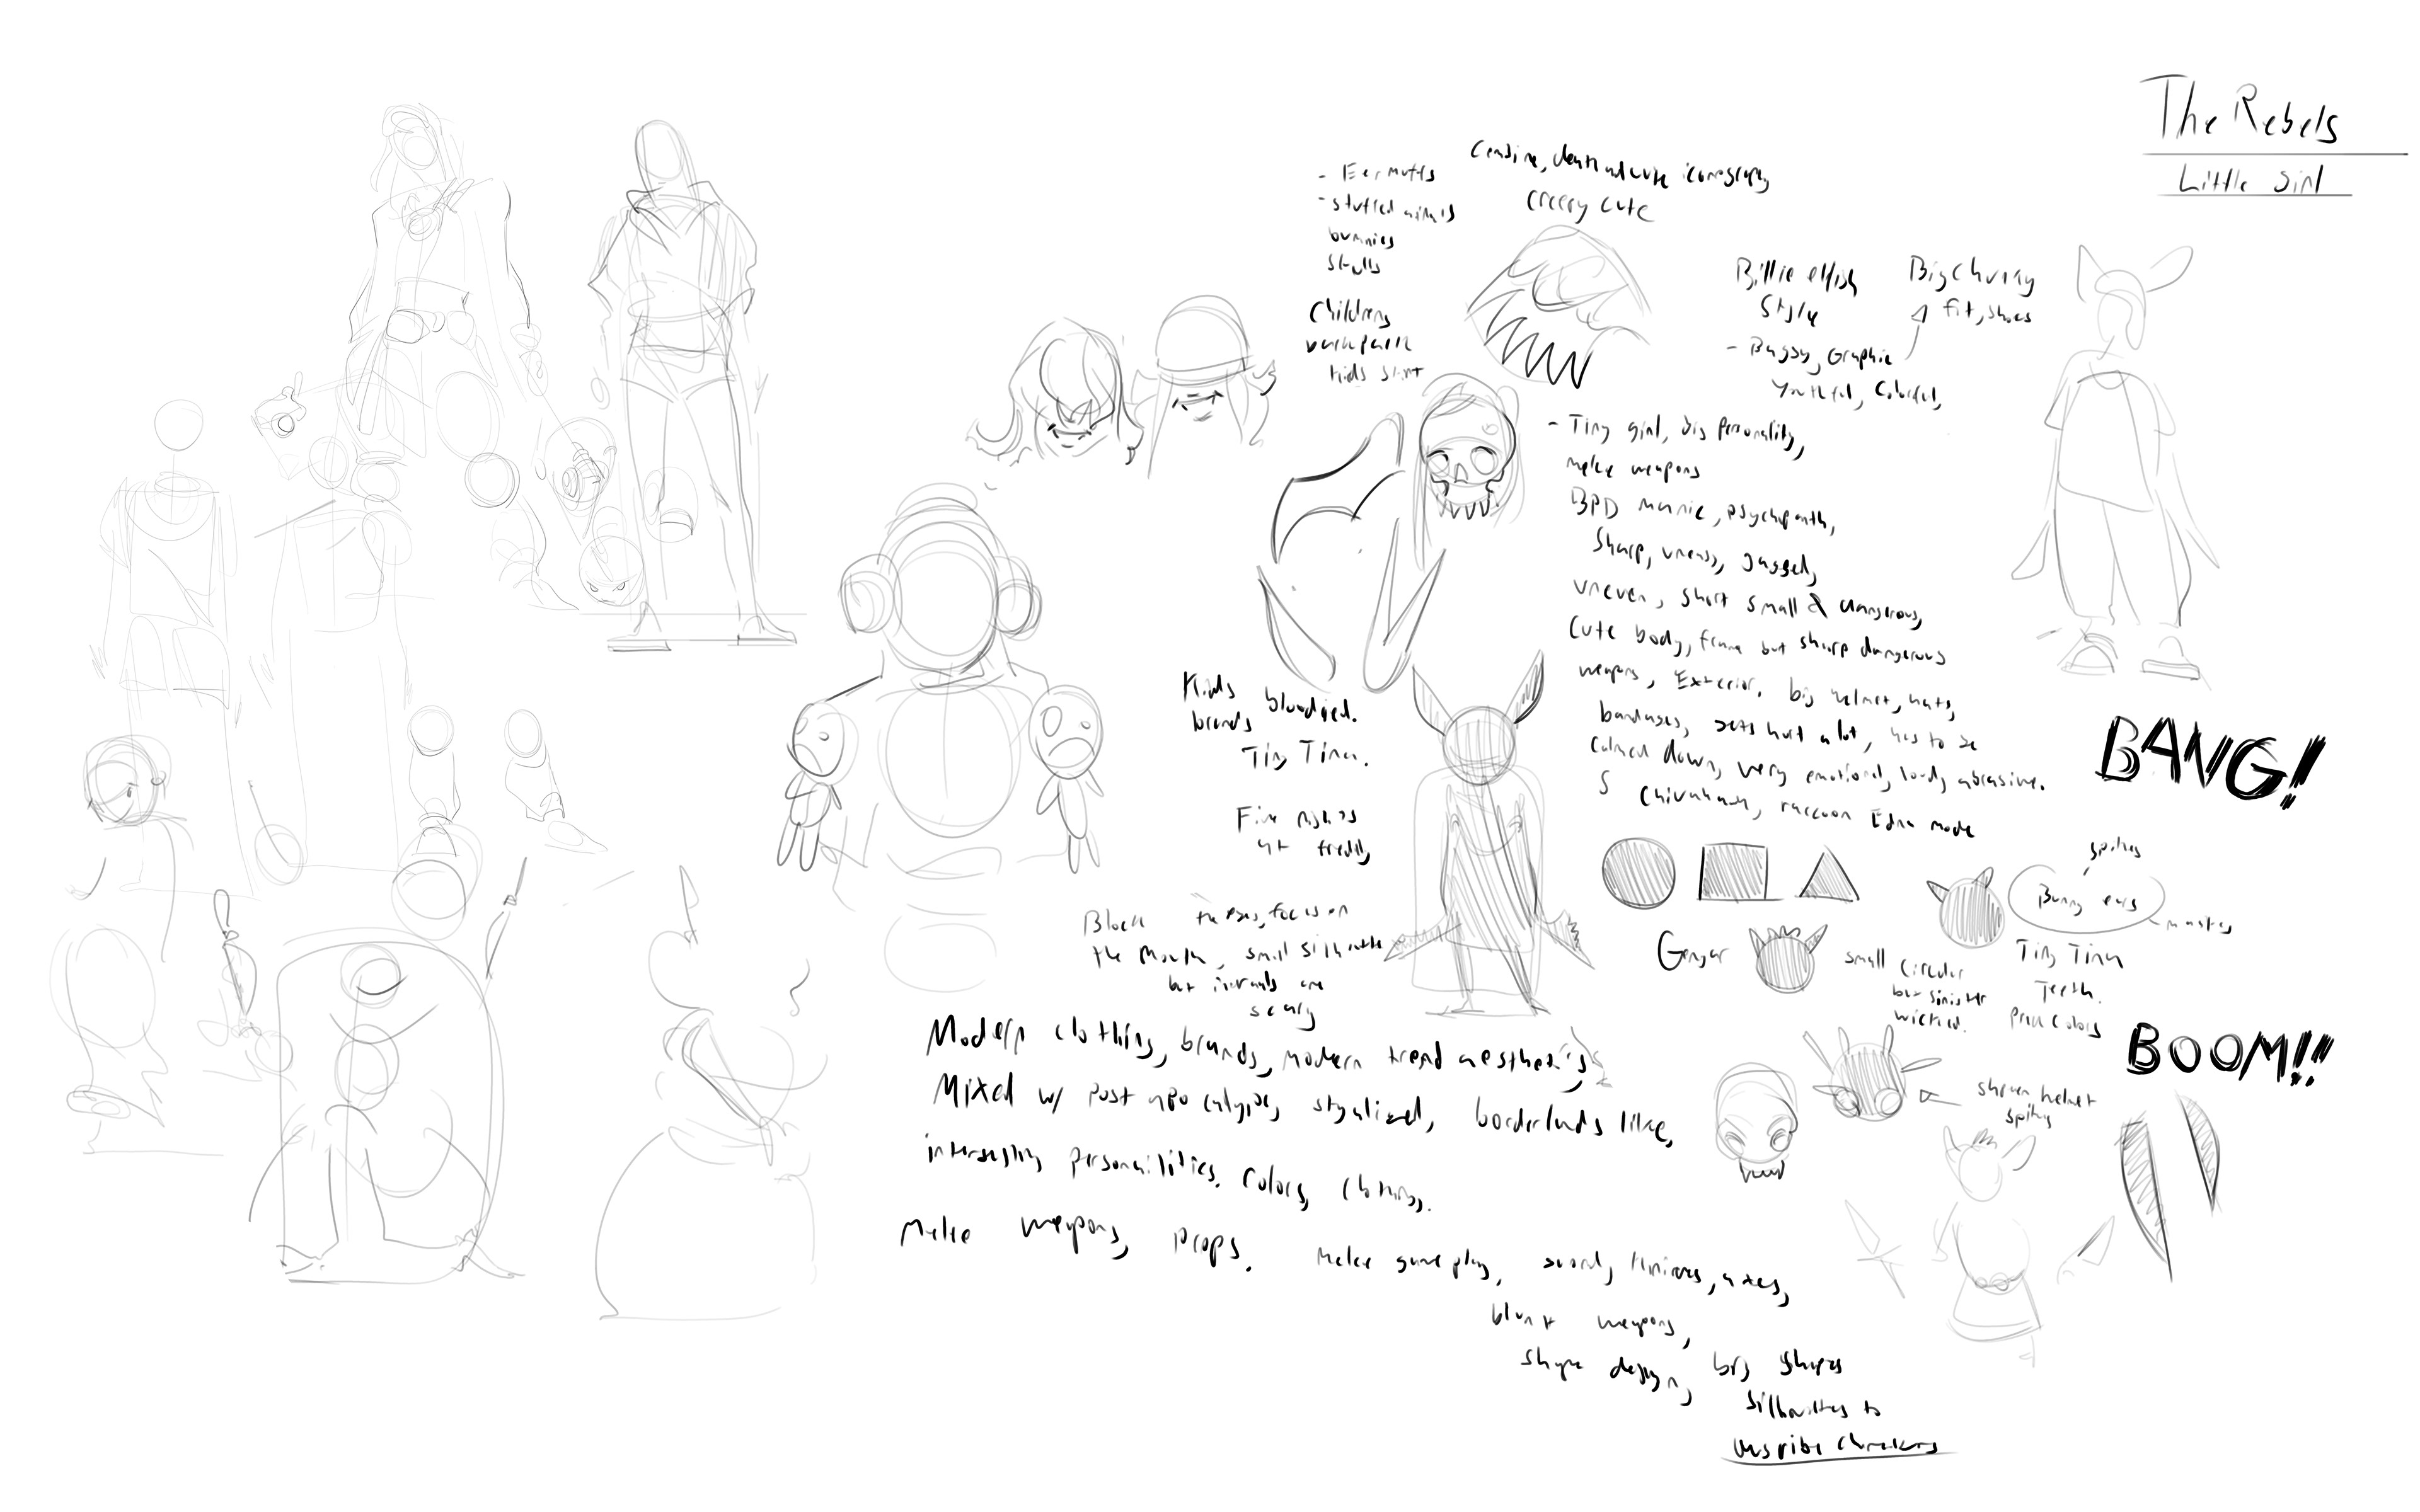 The Rebels
Little Girl
- Ear muffs
- stuffed animals
bunnies
skulls
Childrens
backpack
kids shirt
Combine, death and cute iconography
creepy cute
Billie eilish
Style
Big Chunky
fit, shoes
- Baggy, Graphic
Youthful, Colorful,
- Tiny girl, big personality,
melee weapons
BPD manic, psychopath,
Sharp, uneasy, Jagged,
uneven, short small & dangerous,
Cute body, frame but sharp dangerous
weapons, Exterior. big helmet, hats,
bandages, gets hurt a lot, has to be
calmed down, very emotional, loud, abrasive.
Chiuahah, raccoon Edna mode
Kids bloodied.
brands
Tiny Tina.
Five nights
at freddy
BANG!
Block the eyes, focus on
the mouth, small silhouette
but internals are
scary
Gengar
small circular
but sinister
wicked.
spikes
Bunny ears
masks
Tiny Tina
Teeth.
BOOM!!
helmet
spiky
Modern clothing, brands, modern trend aesthetics,
Mixed w/ post apocalypse, stylized, borderlands like,
interesting personalities. Colors, Clothing.
Melee weapons, props. Melee gameplay, sword, knives, axes,
blunt weapons,
shape design, big shapes
silhouettes to
describe characters